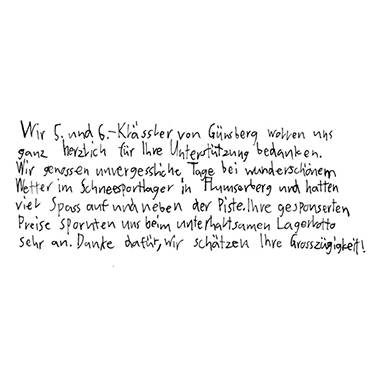 Wir 5. und 6.-Klässler von Günsberg wollen uns
ganz herzlich für Ihre Unterstützung bedanken.
Wir genossen unvergessliche Tage bei wunderschönem
Wetter im Schneesportlager in Flumserberg und hatten
viel Spass auf und neben der Piste. Ihre gesponserten
Preise spornten uns beim unterhaltsamen Lagerlotto
sehr an. Danke dafür, wir schätzen Ihre Grosszügigkeit!